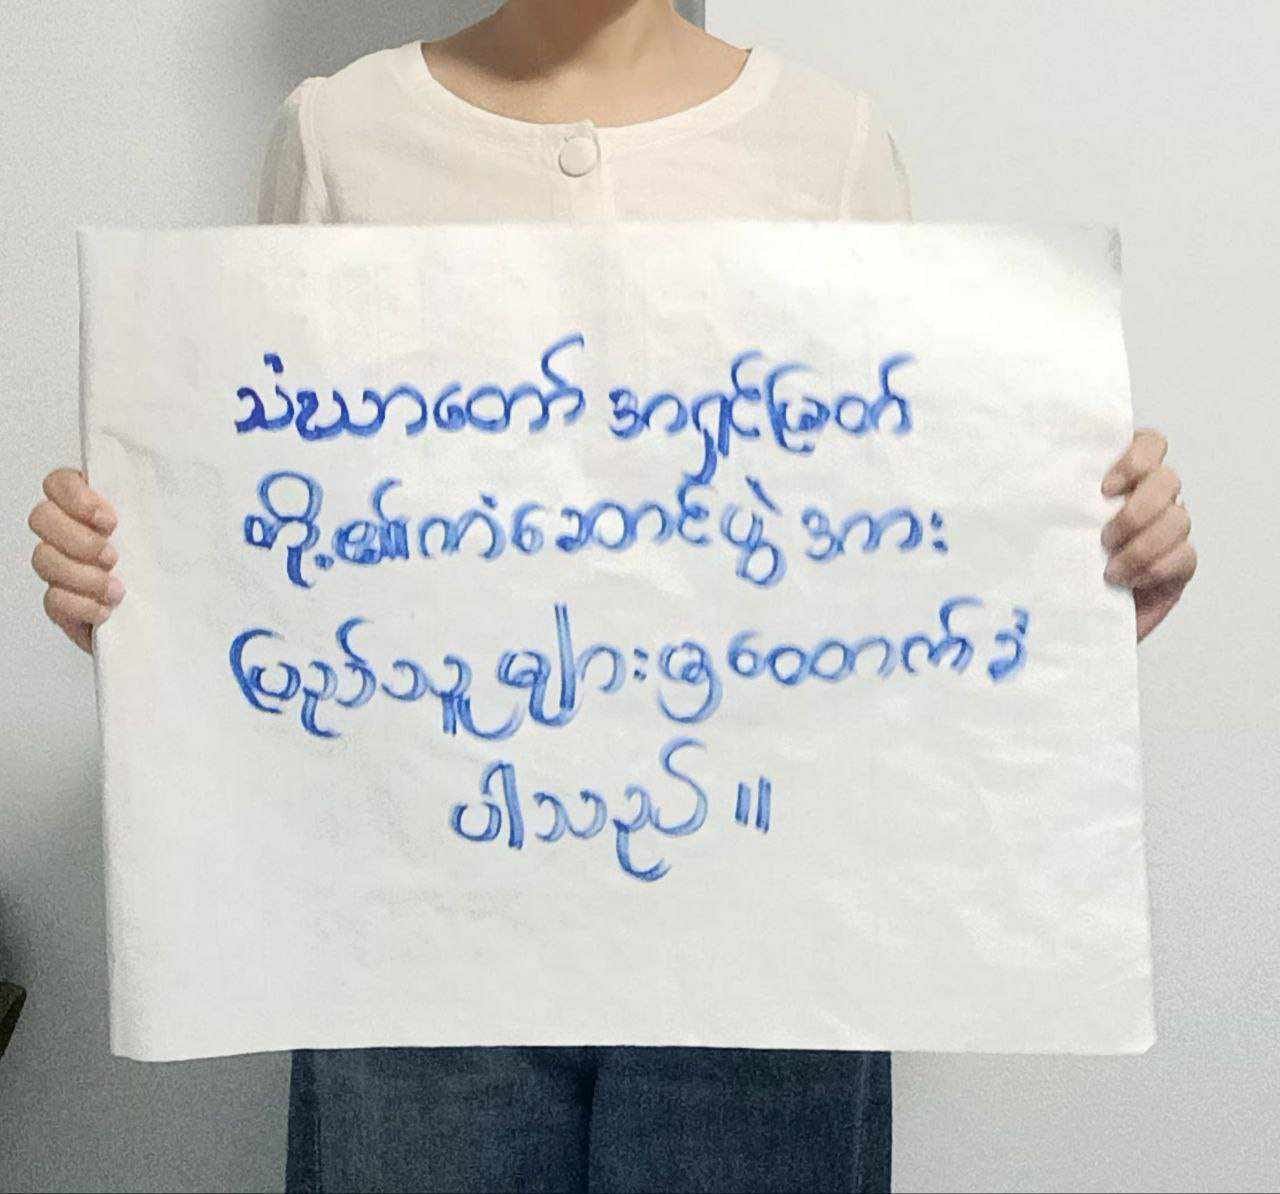 သံဃာတော် အရှင်မြတ်
တို့၏ကံဆောင်ပွဲ အား
ပြည်သူများမှ ထောက်ခံ
ပါသည် ။